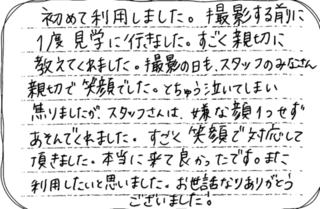 初めて利用しました。撮影する前に
1度見学に行きました。すごく親切に
教えてくれました。撮影の日も、スタッフのみなさん
親切で笑顔でした。とちゅう泣いてしまい
焦りましたが、スタッフさんは、嫌な顔1つせず
あそんでくれました。すごく笑顔で対応して
頂きました。本当に来て良かったです。また、
利用したいと思いました。お世話なりありがとう
ございました!